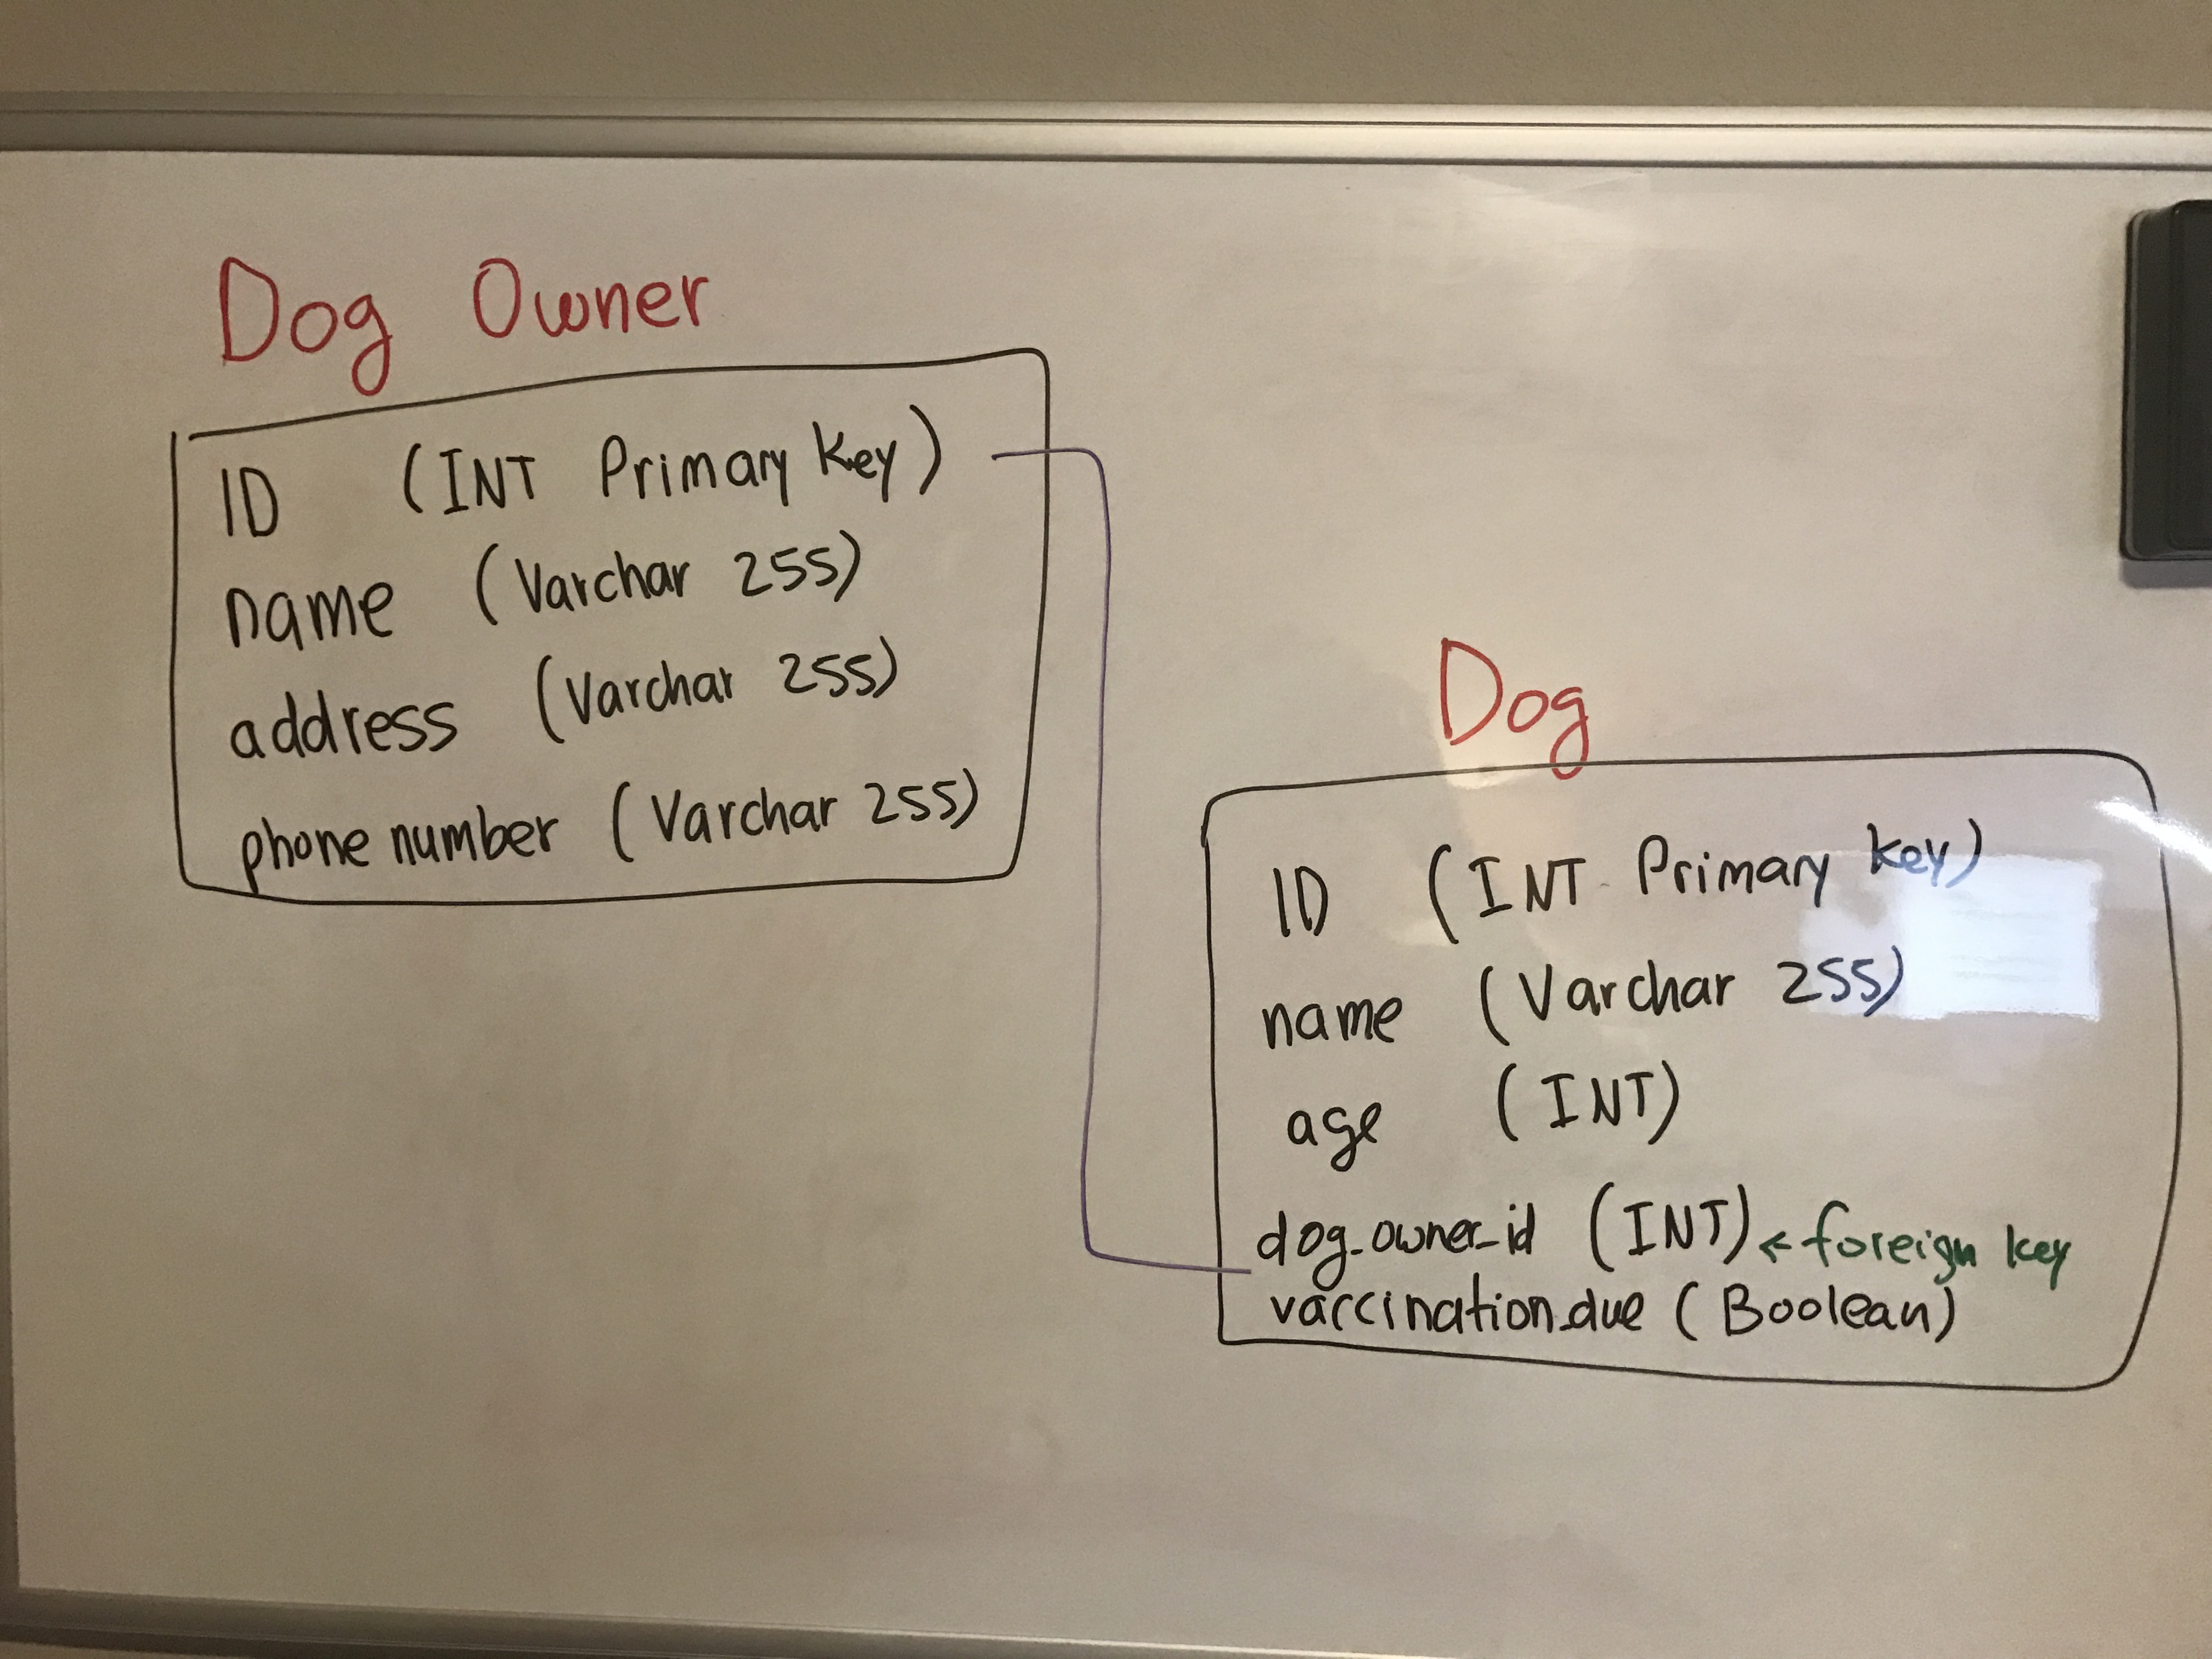 Dog Owner
ID (INT Primary Key)
name (Varchar 255)
address (Varchar 255)
phone number (Varchar 255)
Dog
ID (INT Primary key)
name (Varchar 255)
age (INT)
dog_owner_id (INT) ← foreign key
vaccination_due (Boolean)